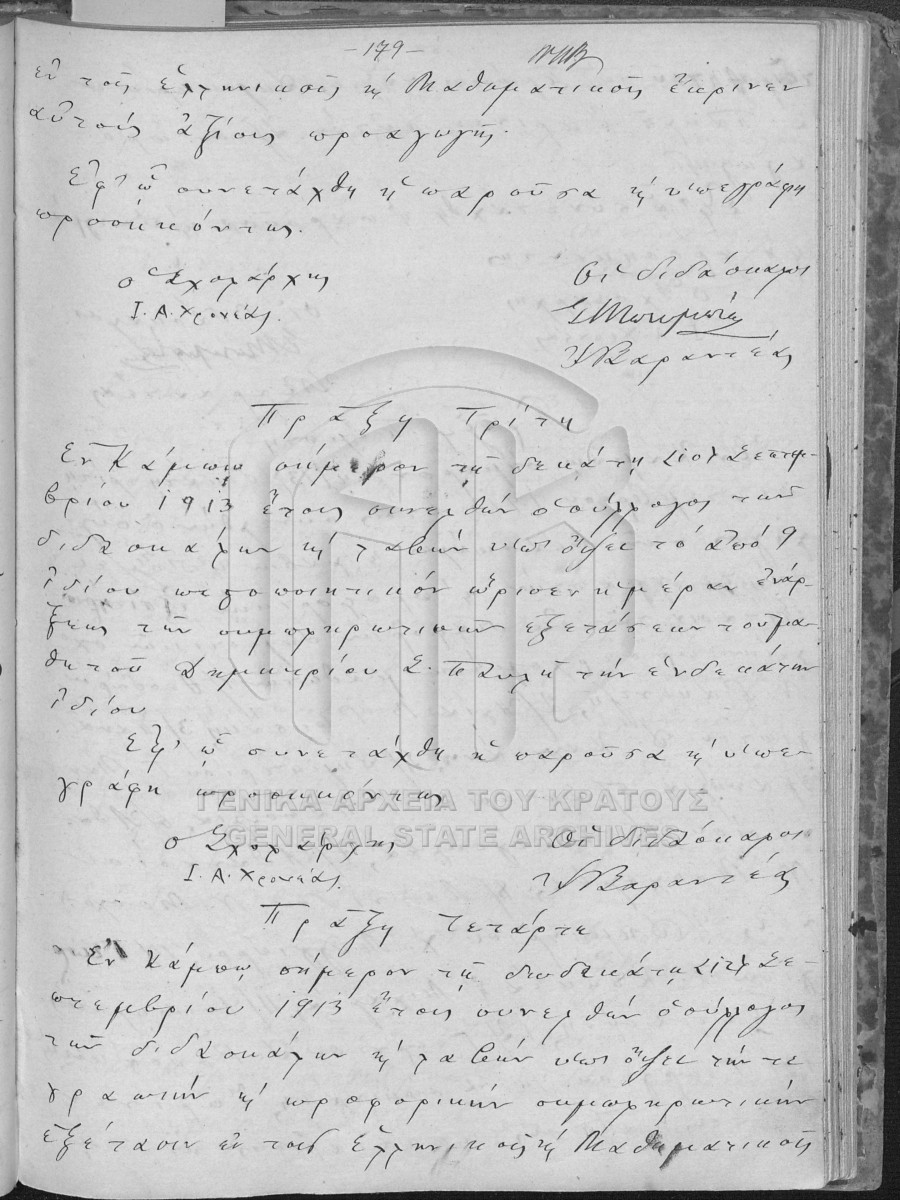 -179-
ἐν τοῖς Ἑλληνικοῖς κ Μαθηματικοῖς ἔκρινεν
αὐτοὺς ἀξίους προαγωγῆς.
Ἐφ' ᾧ συνετάχθη ἡ παροῦσα κ ὑπεγράφη
προσηκόντως.
Ὁ Σχολάρχης
Οἱ διδάσκαλοι
Ι. Α. Χρονέας.
Βαραντέας
Πράξις Τρίτη
Ἐν Κάμπῳ σήμερον τῇ δεκάτῃ Σεπτεμ-
βρίου 1913 ἔτους συνελθὼν ὁ σύλλογος τῶν
διδασκάλων κ λαβὼν ὑπ' ὄψει τὸ ἀπὸ 9
ἰδίου πιστοποιητικὸν ὥρισεν ἡμέραν ἐνάρ-
ξεως τῶν συμπληρωτικῶν ἐξετάσεων τοῦ μα-
θητοῦ Δημητρίου Σ. τὴν ἑνδεκάτην
ἰδίου
Ἐφ' ᾧ συνετάχθη ἡ παροῦσα κ ὑπε-
γράφη προσηκόντως
ΓΕΝΙΚΑ ΑΡΧΕΙΑ ΤΟΥ ΚΡΑΤΟΥΣ
GENERAL STATE ARCHIVES
Ὁ Σχολάρχης
Οἱ διδάσκαλοι
Ι. Α. Χρονέας.
Βαραντέας
Πράξις τετάρτη
Ἐν Κάμπῳ σήμερον τῇ δωδεκάτῃ Σε-
πτεμβρίου 1913 ἔτους συνελθὼν ὁ σύλλογος
τῶν διδασκάλων κ λαβὼν ὑπ' ὄψει τήν τε
γραπτὴν κ προφορικὴν συμπληρωτικὴν
ἐξέτασιν ἐν τοῖς Ἑλληνικοῖς κ Μαθηματικοῖς